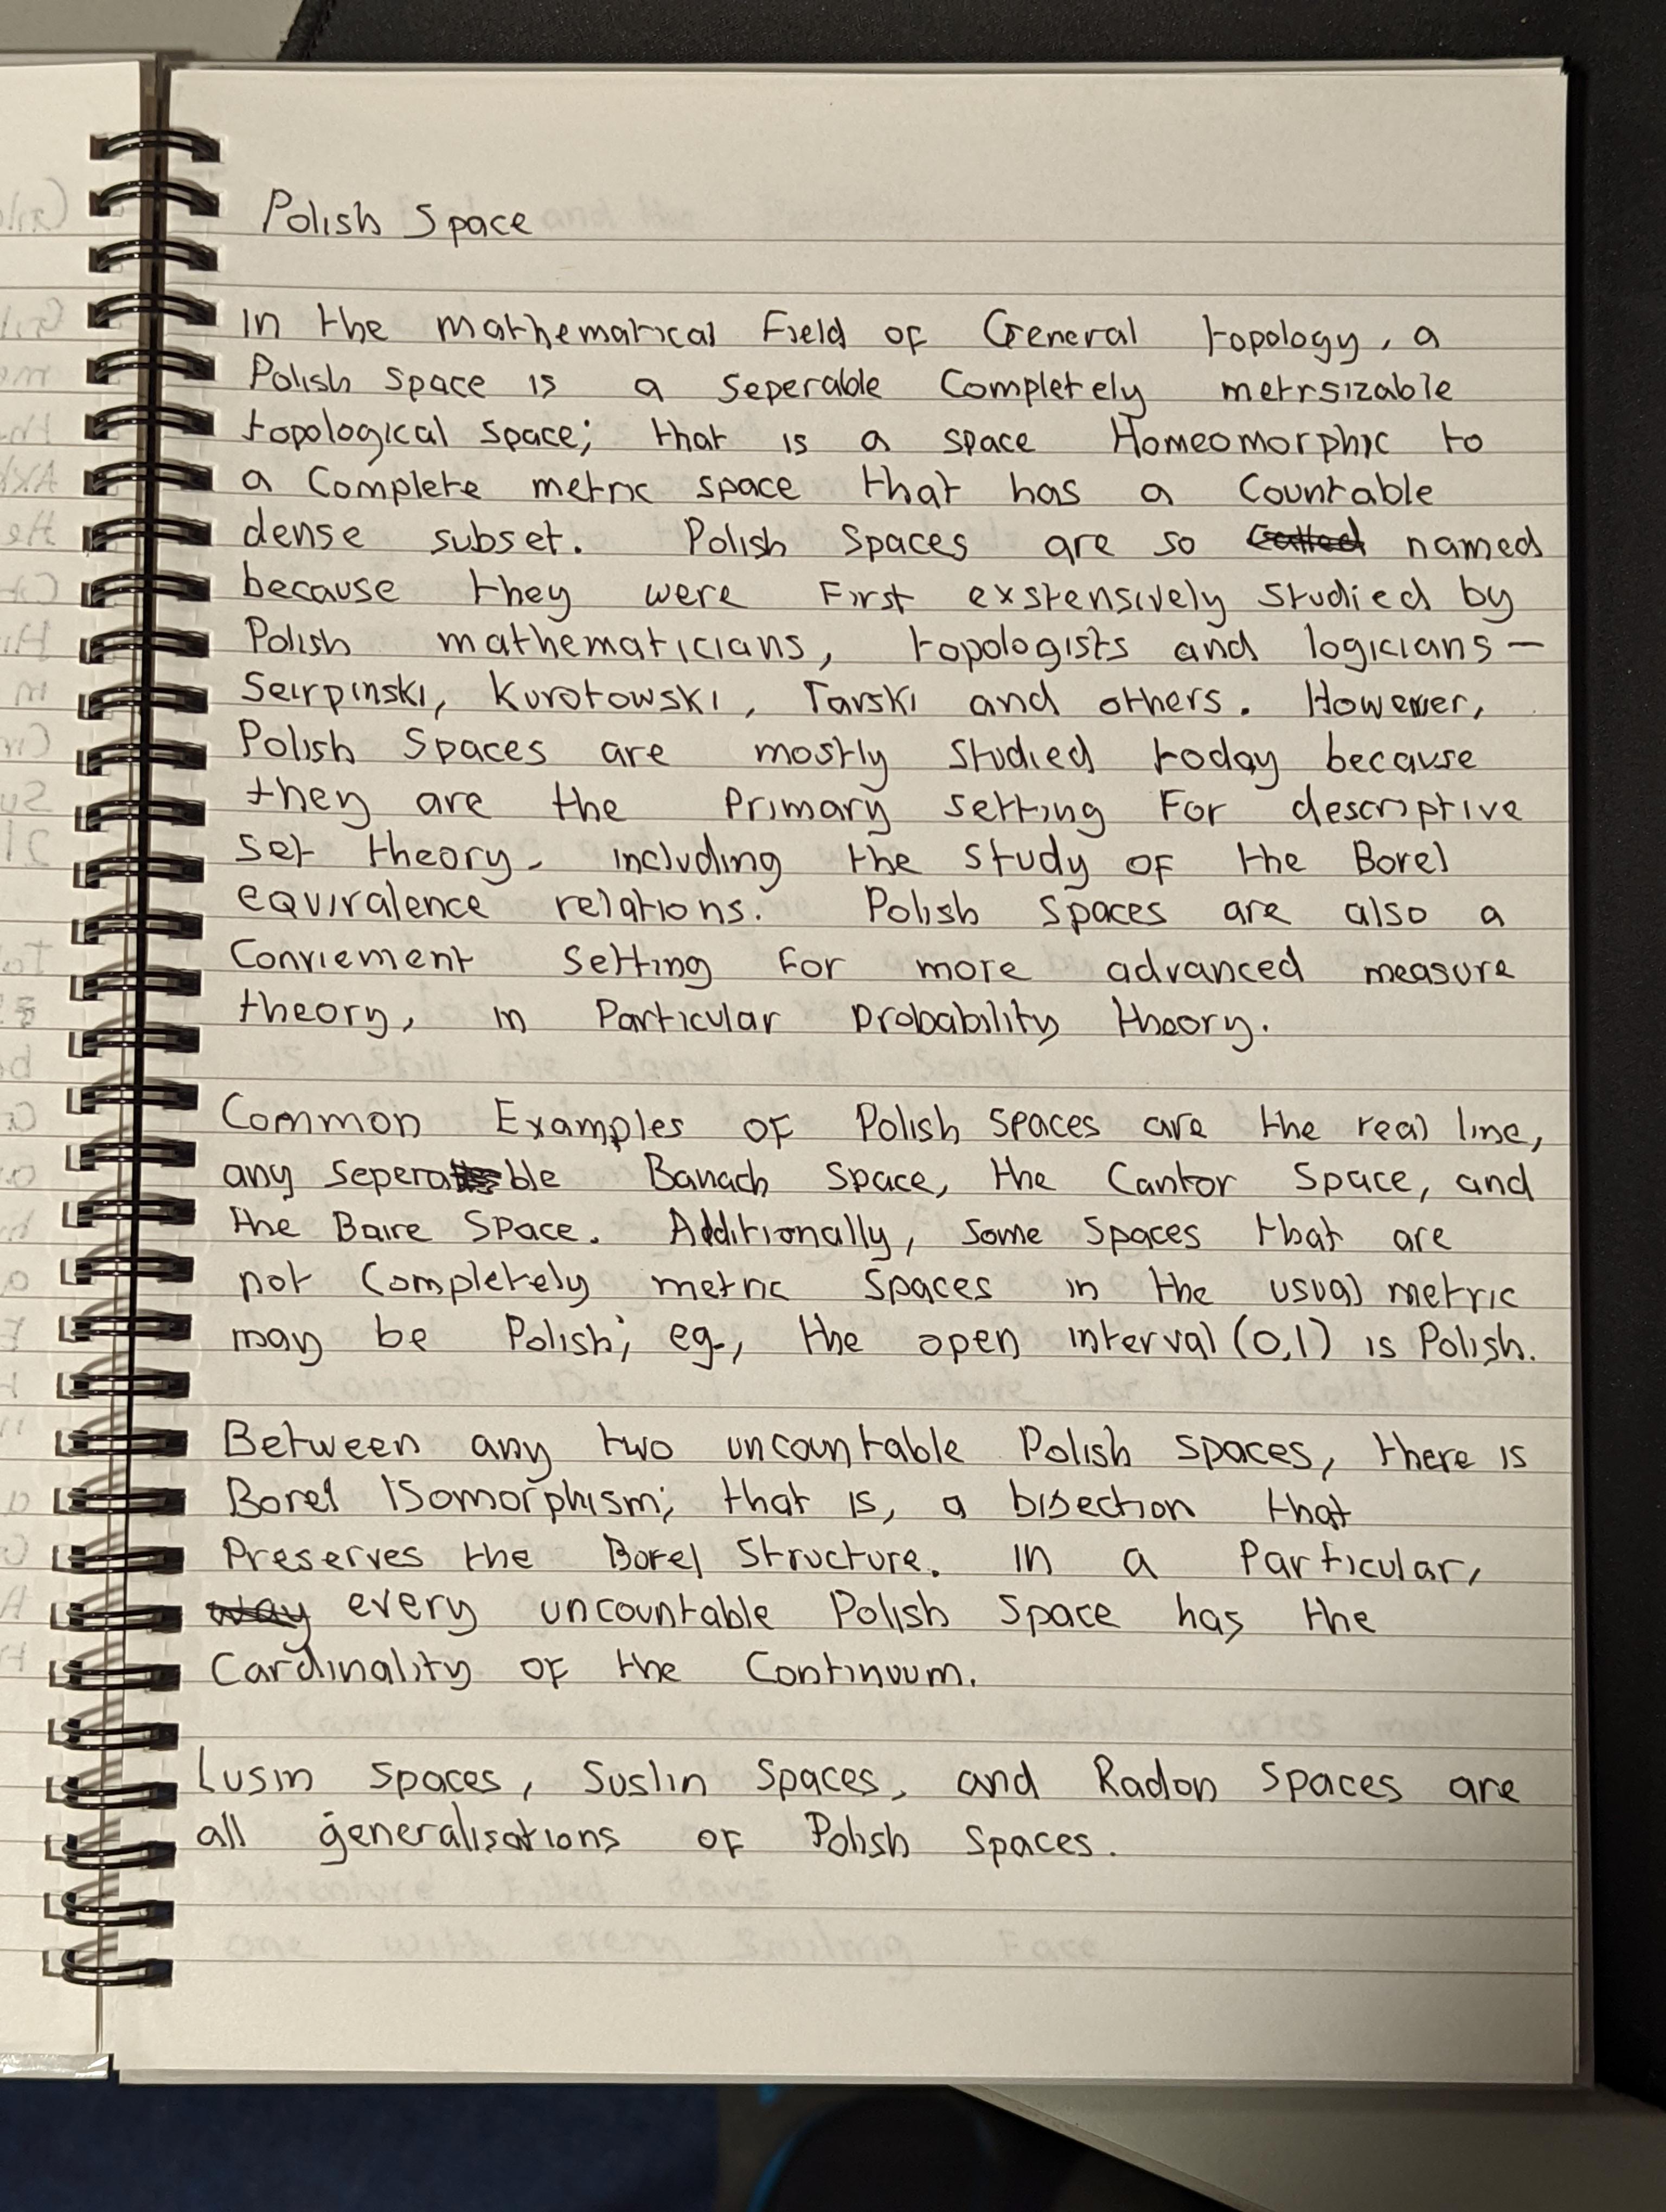 Polish Space
In the mathematical Field of General topology, a
Polish space is a seperable Completely metrsizable
topological space; that is a space Homeomorphic to
a Complete metric space that has a Countable
dense subset. Polish Spaces are so called named
because they were First exstensively studied by
Polish mathematicians, topologists and logicians—
Seirpinski, Kurotowski, Tarski and others. However,
Polish Spaces are mostly studied today because
they are the Primary setting For descriptive
set theory, including the study of the Borel
equivalence relations. Polish Spaces are also a
Conviement setting For more advanced measure
theory, in Particular Probability theory.
Common Examples of Polish spaces are the real line,
any seperable Banach Space, the Cantor Space, and
the Baire Space. Additionally, some spaces that are
not Completely metric spaces in the usual metric
may be Polish; eg., the open interval (0,1) is Polish.
Between any two uncountable Polish spaces, there is
Borel Isomorphism; that is, a bijection that
Preserves the Borel Structure. In a Particular,
way every uncountable Polish Space has the
Cardinality of the Continuum.
Lusin Spaces, Suslin Spaces, and Radon Spaces are
all generalisations of Polish Spaces.